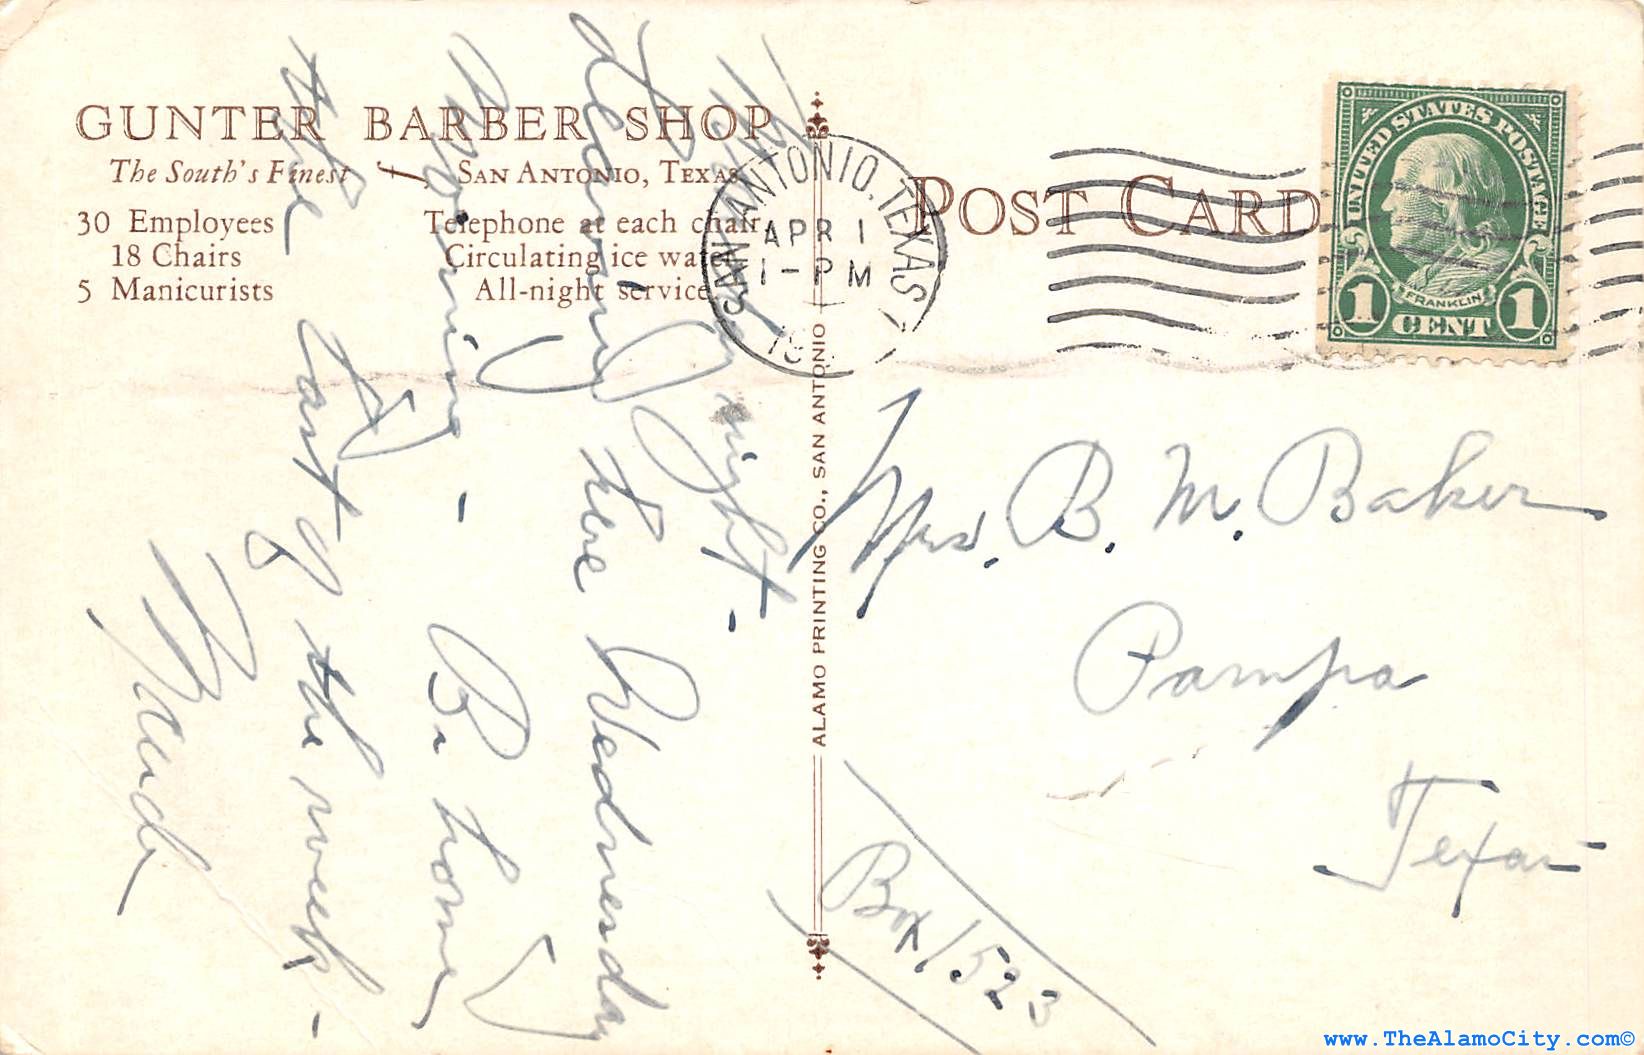 GUNTER BARBER SHOP
The South's Finest
San Antonio, Texas
30 Employees
18 Chairs
5 Manicurists
Telephone at each chair
Circulating ice water
All-night service
POST CARD
SAN ANTONIO, TEXAS
APR 1
1-PM
19
UNITED STATES POSTAGE
FRANKLIN
1 CENT 1
ALAMO PRINTING CO., SAN ANTONIO
night.
Leaving here Wednesday
morning - Be home
the last of the week -
Maude
Mrs. B. M. Baker
Pampa
Texas
Box 1523
www.TheAlamoCity.com©